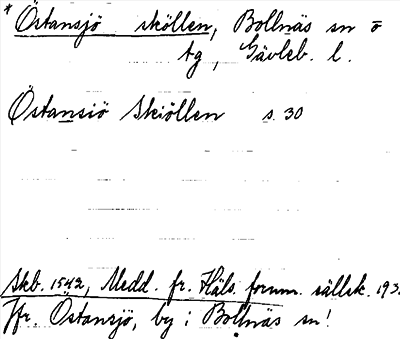 * Östansjö sköllen, Bollnäs sn o
tg, Gävleb. l.
Östansiö Skiöllen s. 30
Skb. 1542, Medd. fr. Häls. fornm. sällsk. 193.
Jfr. Östansjö, by i Bollnäs sn!